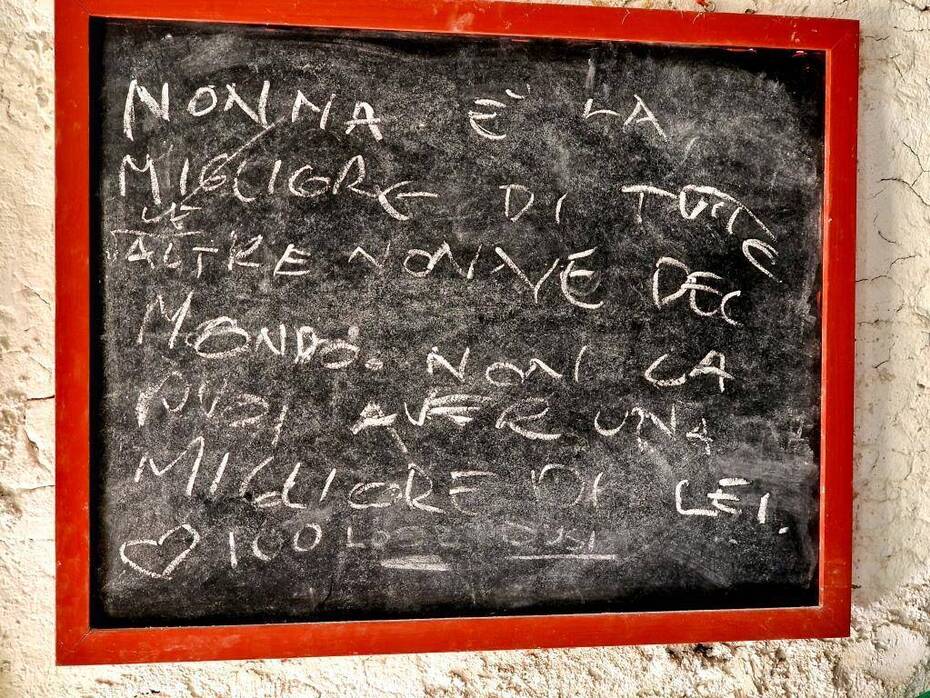 NONNA È LA
MIGLIORE DI TUTTE
LE
ALTRE NONNE DEL
MONDO. NON LA
PUOI AVER UNA
MIGLIORE DI LEI.
100